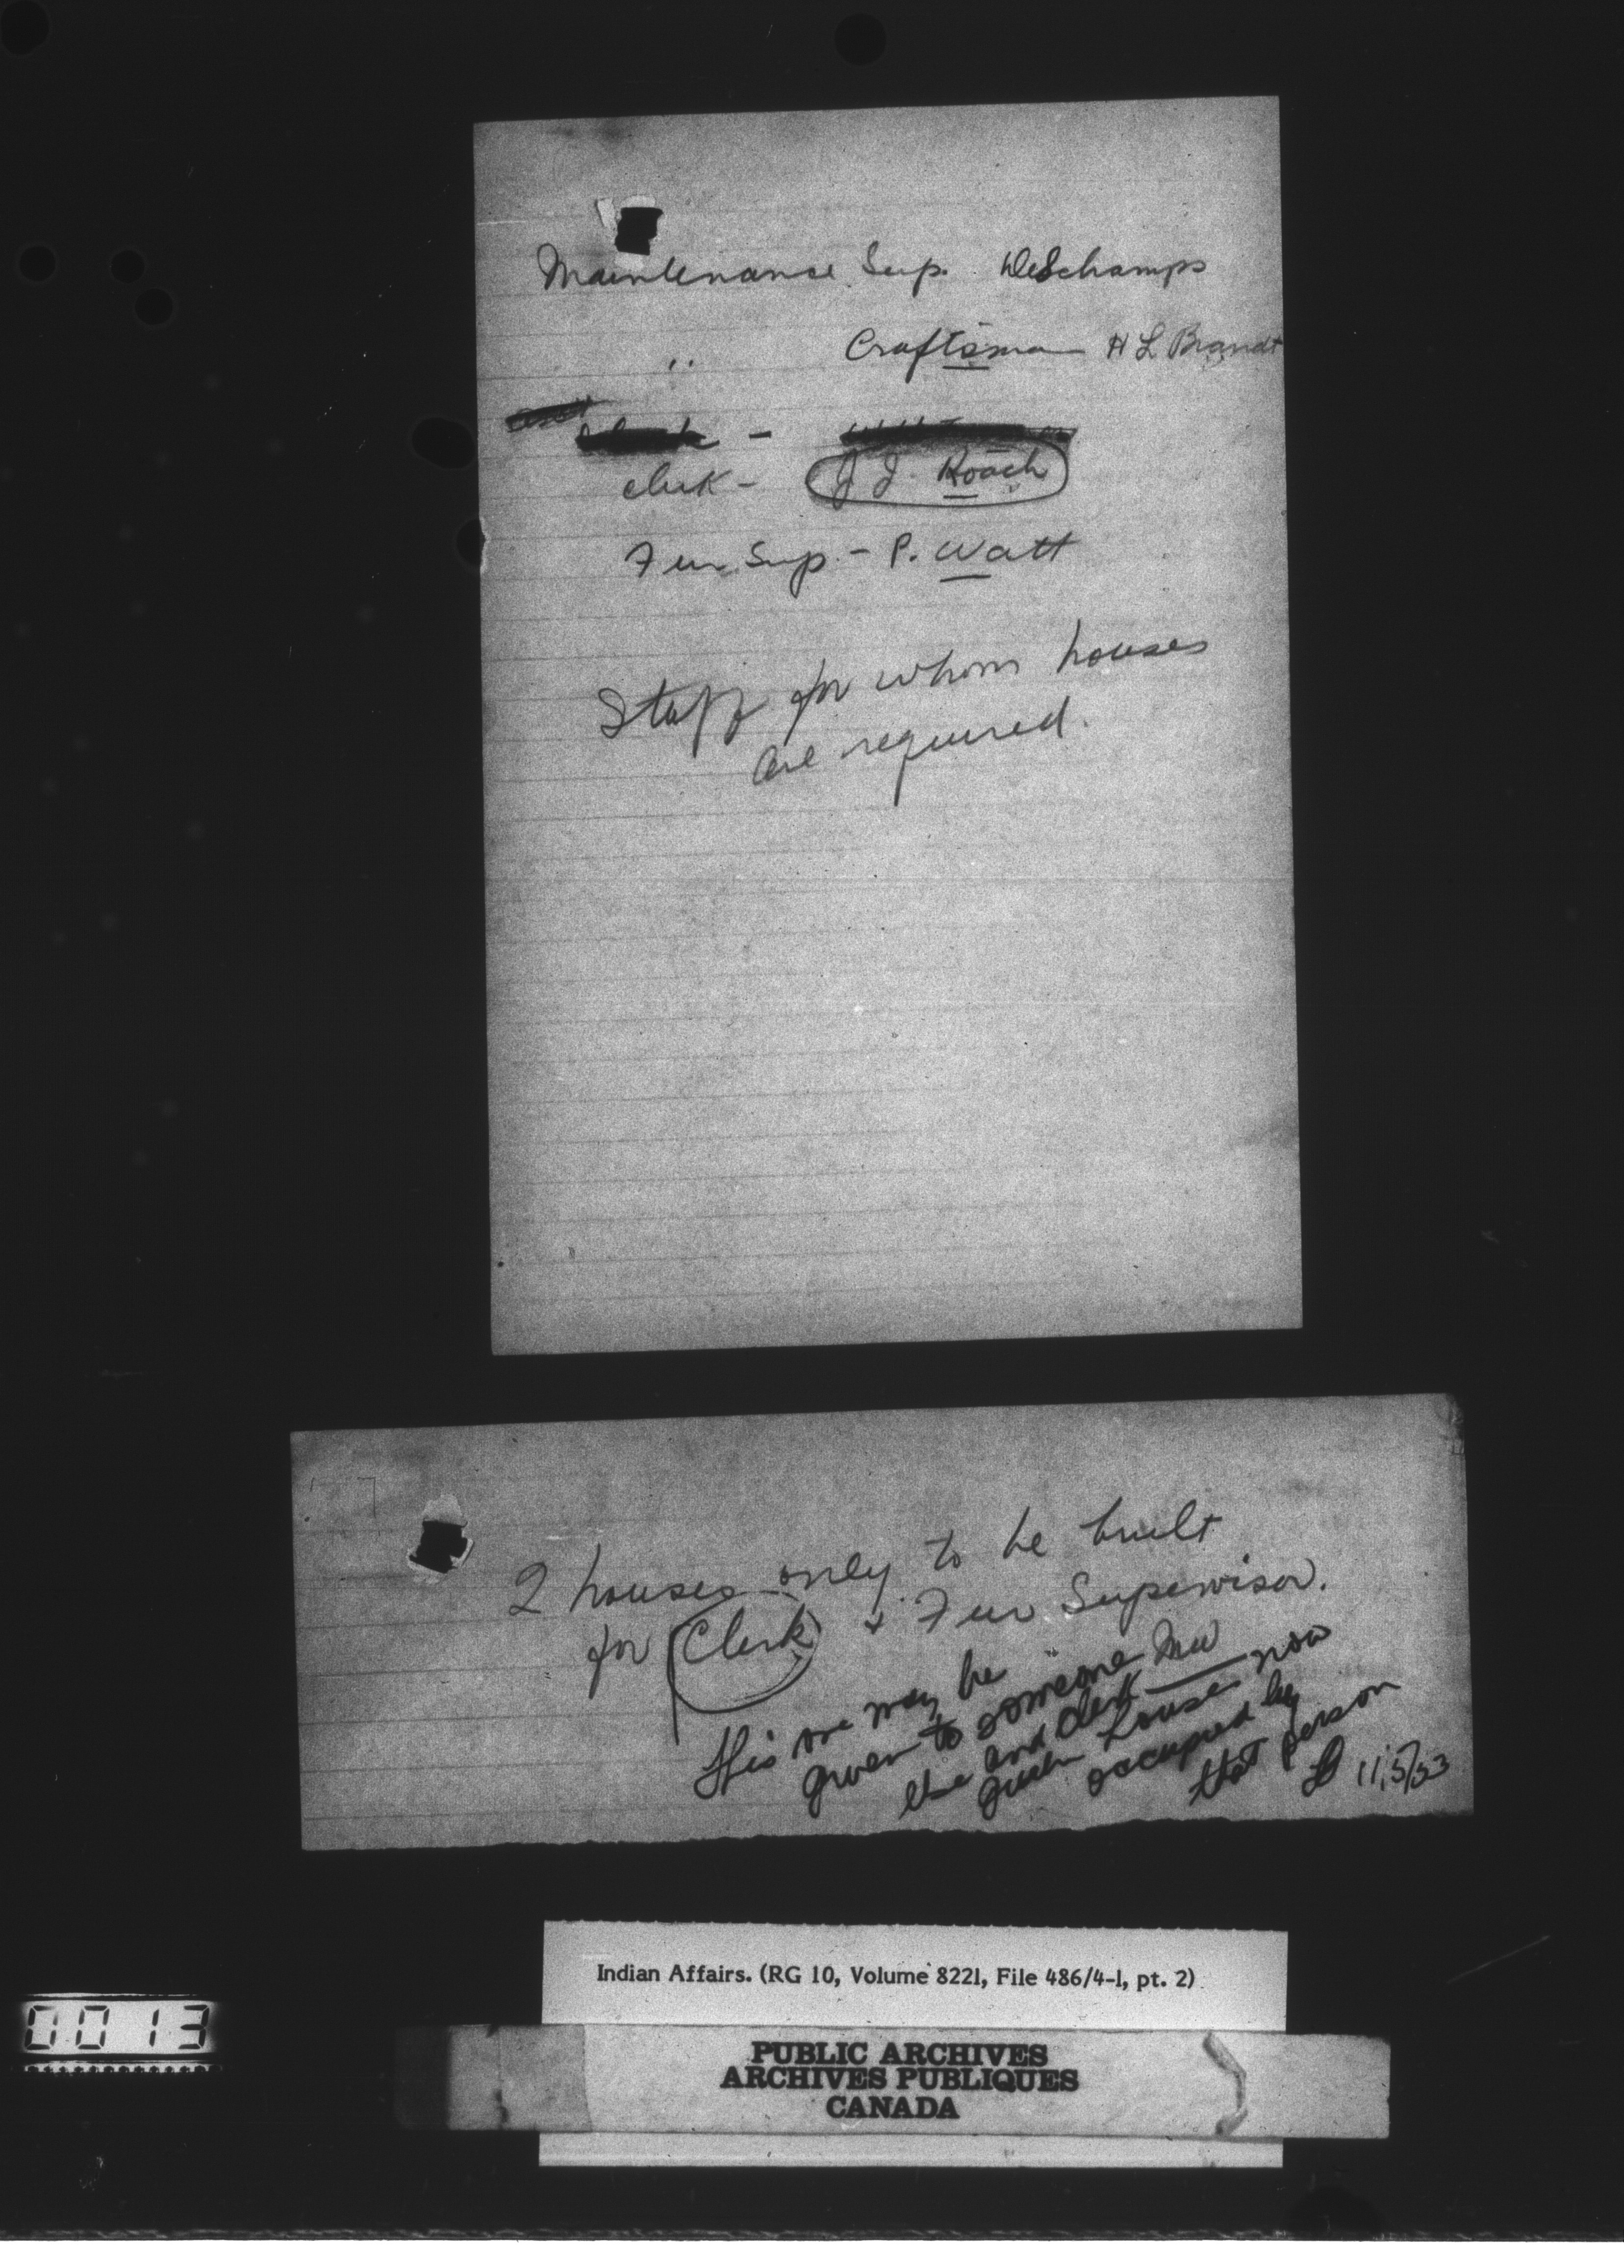 Maintenance Sup. DesChamps
" Craftsman H L Brandt
clerk - J J. Roach
Fur Sup. - P. Watt
Staff for whom houses
are required.
2 houses only to be built
for Clerk + Fur Supervisor.
This one may be
given to someone
else and clerk
given house now
occupied by
that person
11/5/53
Indian Affairs. (RG 10, Volume 8221, File 486/4-1, pt. 2)
0013
PUBLIC ARCHIVES
ARCHIVES PUBLIQUES
CANADA